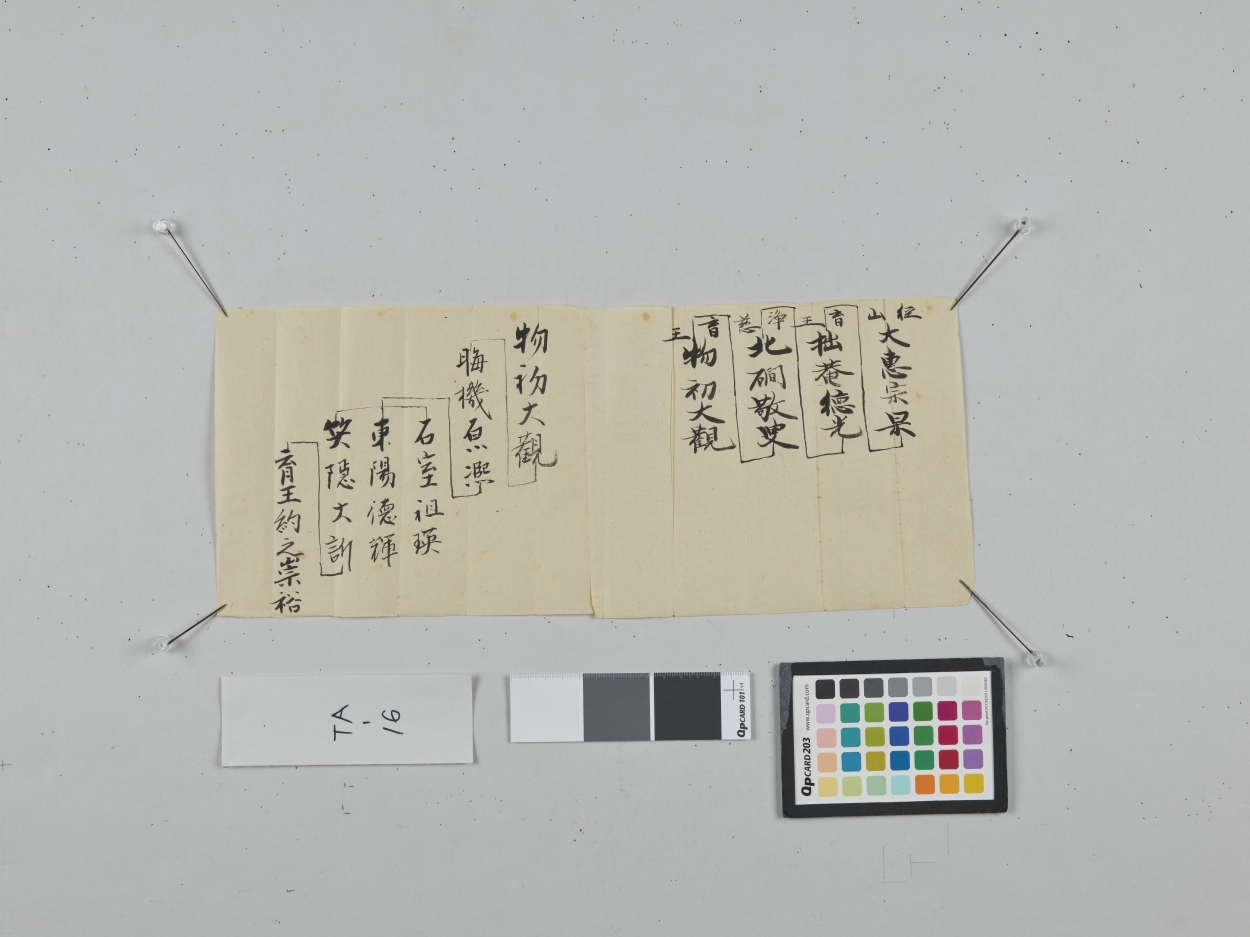 径山
大惠宗杲
育王
拙菴德光
浄慈
北磵敬叟
育王
物初大觀
物初大觀
晦機
石室祖瑛
東陽德輝
笑隠大訢
育王約之崇裕
TA-16
QPCARD 101 v4
QPCARD 203
www.qpcard.com